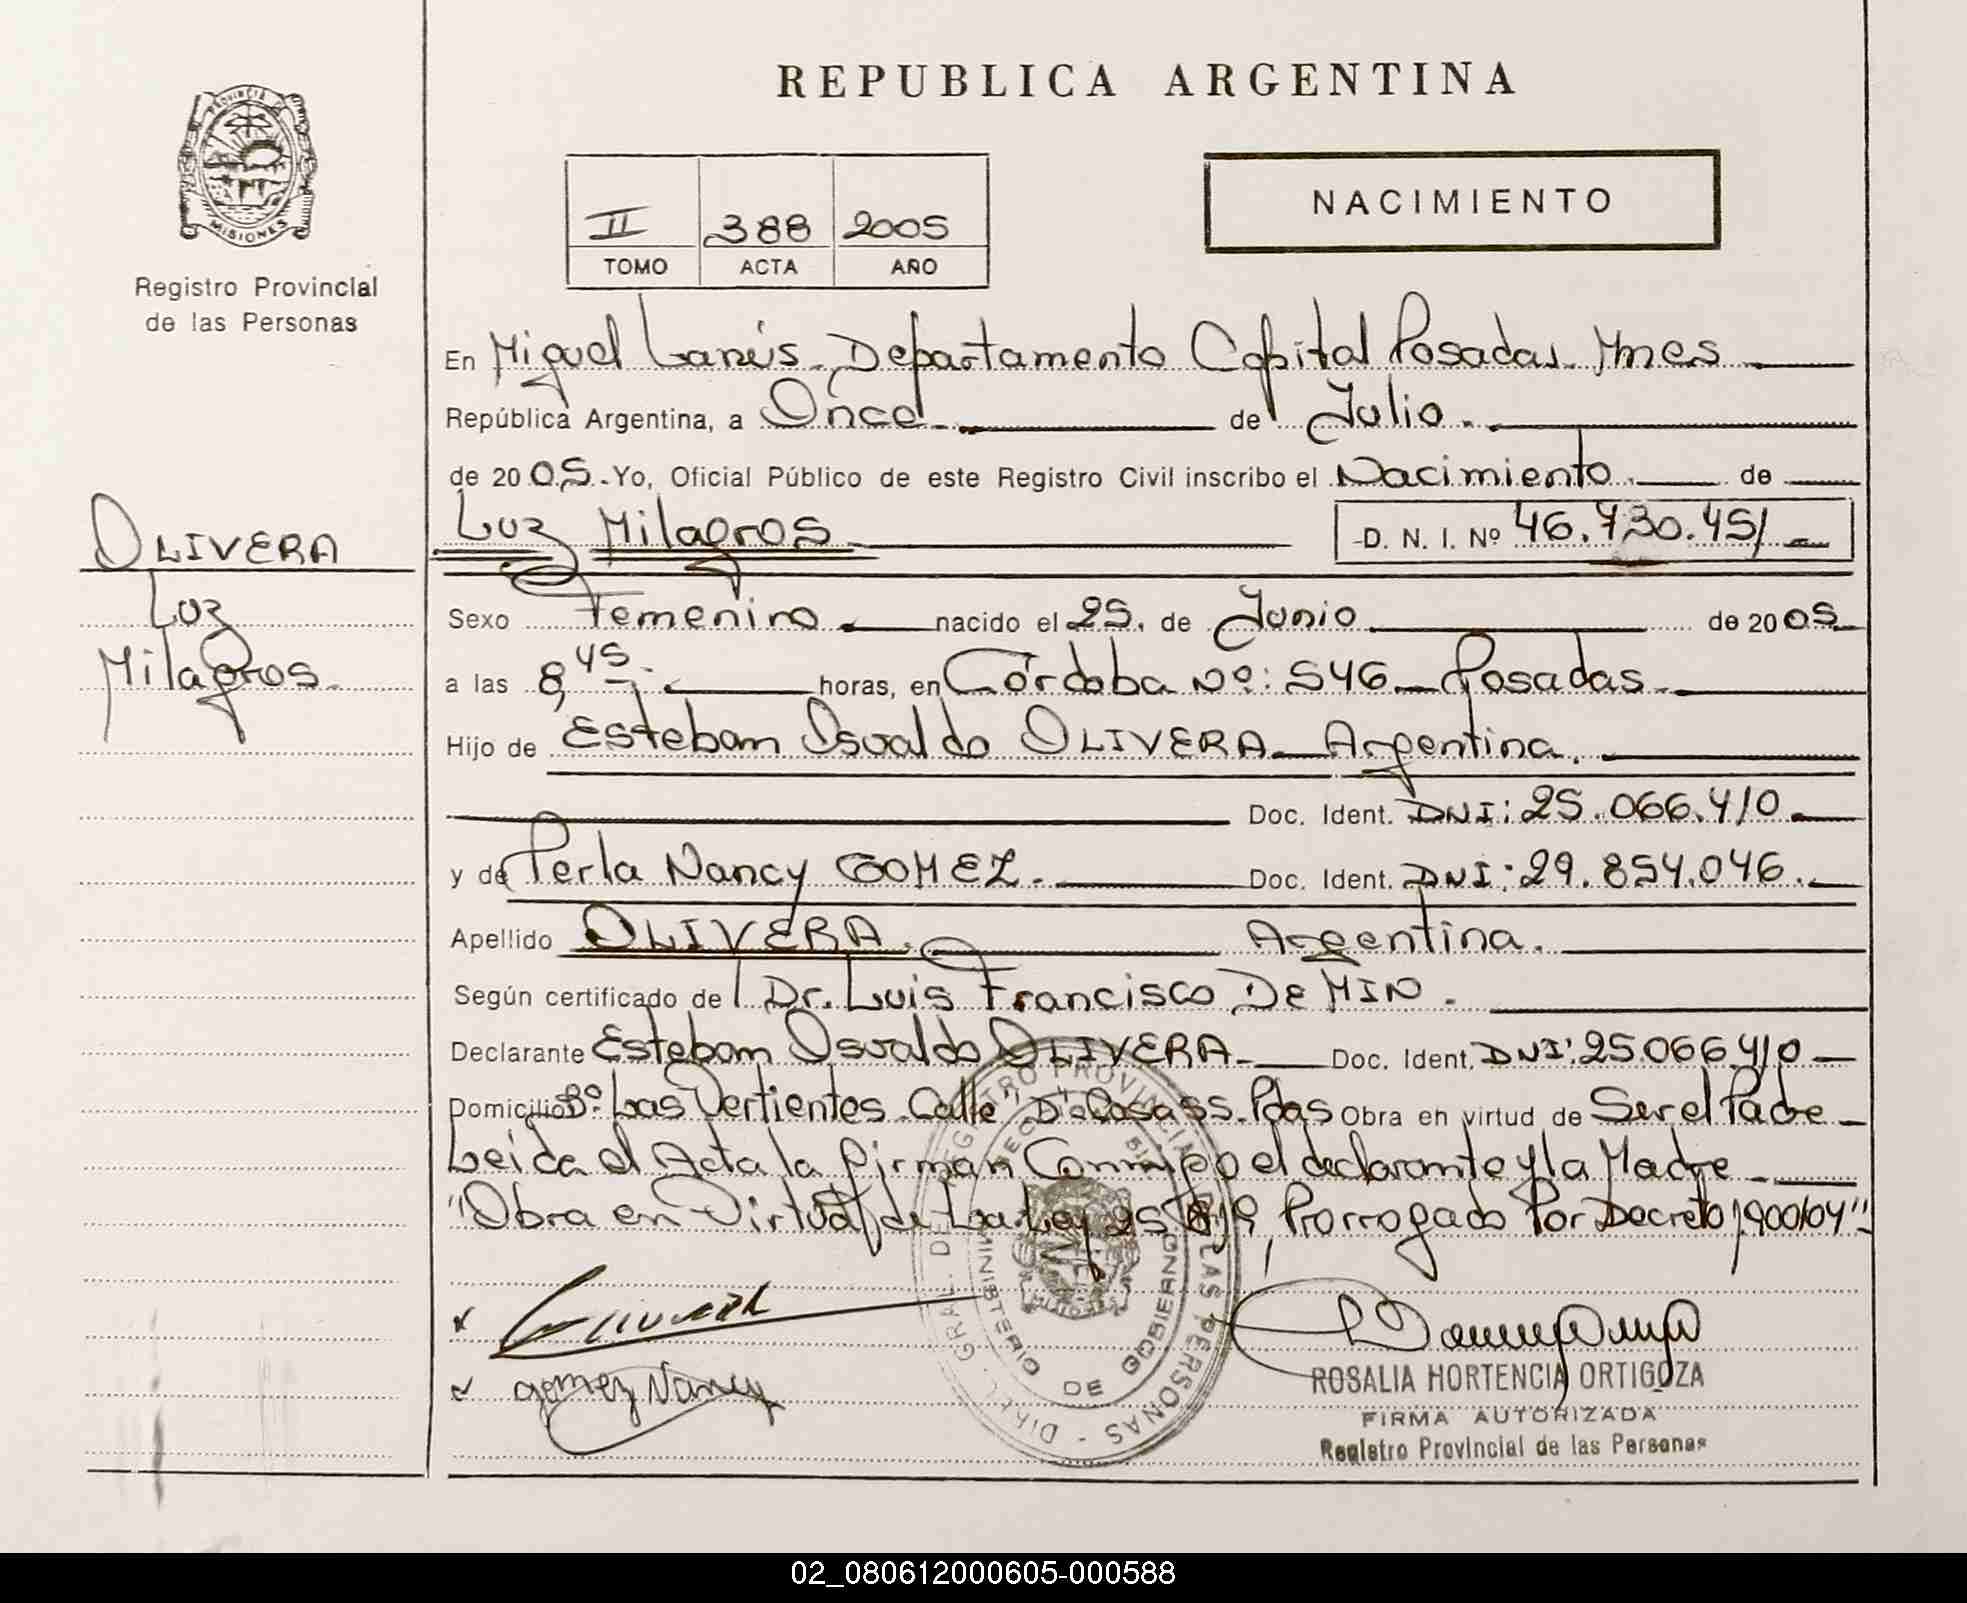 REPUBLICA ARGENTINA
PROVINCIA DE
MISIONES
Registro Provincial
de las Personas
II 388 2005
TOMO ACTA AÑO
NACIMIENTO
En Miguel Lanús - Departamento Capital Posadas - Mnes
República Argentina, a Once de Julio.
de 2005. Yo, Oficial Público de este Registro Civil inscribo el Nacimiento de
Luz Milagros D. N. I. Nº 46.730.451
OLIVERA
Luz
Milagros.
Sexo Femenino nacido el 25. de Junio de 2005
a las 8,45 horas, en Córdoba Nº: 546 - Posadas.
Hijo de Esteban Osvaldo OLIVERA - Argentina.
Doc. Ident. DNI: 25.066.410
y de Perla Nancy GOMEZ. Doc. Ident. DNI: 29.854.046.
Apellido OLIVERA. Argentina.
Según certificado del Dr. Luis Francisco DE MIN.
Declarante Esteban Osvaldo OLIVERA - Doc. Ident. DNI: 25.066.410
Domicilio Bº. Las Vertientes - Calle "D" Casa 55 - Pdas Obra en virtud de Ser el Padre
Leida el Acta la firman Conmigo el declarante y la Madre
"Obra en Virtud de La Ley 25.819, Prorrogado Por Decreto 1900/04"
gomez Nancy
DIREC. GRAL. DEL REGISTRO PROVINCIAL DE LAS PERSONAS
MINISTERIO DE GOBIERNO
ROSALIA HORTENCIA ORTIGOZA
FIRMA AUTORIZADA
Registro Provincial de las Personas
02_080612000605-000588